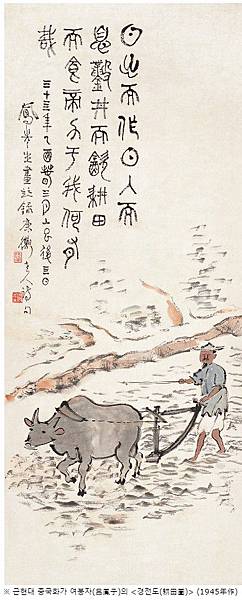 日出而作日入而
息鑿井而飲耕田
而食帝力于我何有
哉
三十三年乙酉 三月 後三日
鳳先生畫並錄康衢老人 句
※ 근현대 중국화가 여봉자(呂鳳子)의 <경전도(耕田圖)> (1945年作)